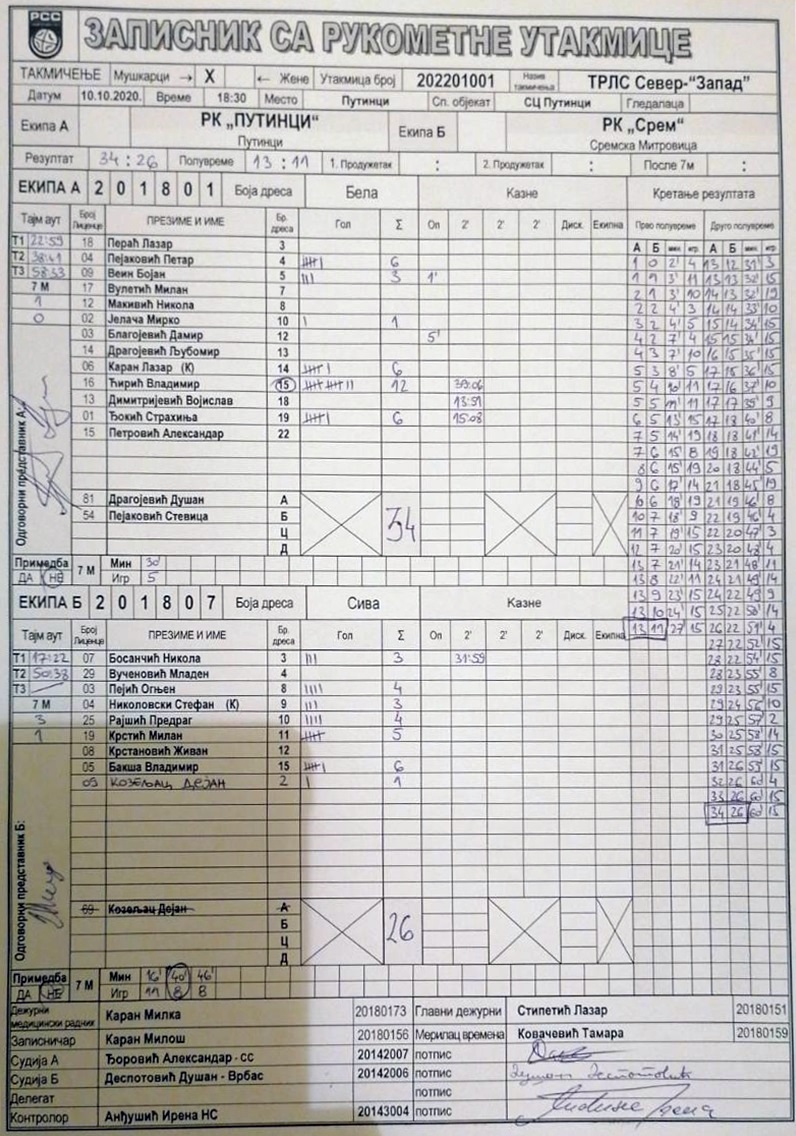 РСС
ЗАПИСНИК СА РУКОМЕТНЕ УТАКМИЦЕ
ТАКМИЧЕЊЕ Мушкарци → X ← Жене Утакмица број 202201001 Назив такмичења ТРЛС Север-“Запад”
Датум 10.10.2020. Време 18:30 Место Путинци Сп. објекат СЦ Путинци Гледалаца
Екипа А РК „ПУТИНЦИ“ Путинци Екипа Б РК „Срем“ Сремска Митровица
Резултат 34 : 26 Полувреме 13 : 11 1. Продужетак : 2. Продужетак : После 7м :
ЕКИПА А 2 0 1 8 0 1 Боја дреса Бела Казне Кретање резултата
Тајм аут Број Лиценце ПРЕЗИМЕ И ИМЕ Бр. дреса Гол Σ Оп 2' 2' 2' Диск. Екипна Прво полувреме Друго полувреме
А Б мин. игр. А Б мин. игр.
Т1 22:59 18 Пераћ Лазар 3
Т2 38:41 04 Пејаковић Петар 4 6
Т3 58:53 09 Веин Бојан 5 3 1'
7 М 17 Вулетић Милан 7
1 12 Макивић Никола 8
0 02 Јелача Мирко 10 1
03 Благојевић Дамир 12 5'
14 Драгојевић Љубомир 13
06 Каран Лазар (К) 14 6
16 Ћирић Владимир 15 12 39:06
13 Димитријевић Војислав 18 13:51
01 Ђокић Страхиња 19 6 15:08
15 Петровић Александар 22
81 Драгојевић Душан А
54 Пејаковић Стевица Б
Ц
Д
34
Одговорни представник А:
Примедба ДА НЕ 7 М Мин 30'
Игр 5
ЕКИПА Б 2 0 1 8 0 7 Боја дреса Сива Казне
Тајм аут Број Лиценце ПРЕЗИМЕ И ИМЕ Бр. дреса Гол Σ Оп 2' 2' 2' Диск. Екипна
Т1 17:22 07 Босанчић Никола 3 3 31:59
Т2 50:38 29 Вученовић Младен 4
Т3 03 Пејић Огњен 8 4
7 М 04 Николовски Стефан (К) 9 3
3 25 Рајшић Предраг 10 4
1 19 Крстић Милан 11 5
08 Крстановић Живан 12
05 Бакша Владимир 15 6
09 КОЗЕЉАЦ ДЕЈАН 2 1
69 Козељац Дејан А
Б
Ц
Д
26
Одговорни представник Б:
Примедба ДА НЕ 7 М Мин 16' 40' 46'
Игр 11 8 8
1 0 2' 4 13 12 31' 3
1 1 3' 11 13 13 32' 15
2 1 3' 10 14 13 32' 19
2 2 4' 3 14 14 33' 10
3 2 4' 5 15 14 34' 15
4 2 7' 4 15 15 34' 15
4 3 7' 10 16 15 35' 15
5 3 8' 5 17 15 36' 15
5 4 10' 11 17 16 37' 10
5 5 11' 11 17 17 39' 9
6 5 13' 15 17 18 40' 8
7 5 14' 19 18 18 41' 14
7 6 15' 8 19 18 42' 19
8 6 15' 19 20 18 44' 5
9 6 17' 14 21 18 45' 19
21 19 46' 8
10 7 18' 9 22 19 46' 4
11 7 19' 15 22 20 47' 3
12 7 20' 15 23 20 48' 4
13 7 21' 14 23 21 48' 11
13 8 22' 11 24 21 49' 14
13 9 23' 15 24 22 49' 9
13 10 24' 15 25 22 50' 14
13 11 27' 15 26 22 51' 4
27 22 52' 15
28 22 54' 15
28 23 55' 8
29 23 55' 15
29 24 56' 10
29 25 57' 2
30 25 58' 14
31 25 58' 15
31 26 59' 15
32 26 60' 4
33 26 60' 15
34 26 60' 15
Дежурни медицински радник Каран Милка 20180173 Главни дежурни Стипетић Лазар 20180151
Записничар Каран Милош 20180156 Мерилац времена Ковачевић Тамара 20180159
Судија А Ђоровић Александар - СС 20142007 потпис
Судија Б Деспотовић Душан - Врбас 20142006 потпис
Делегат потпис
Контролор Анђушић Ирена НС 20143004 потпис